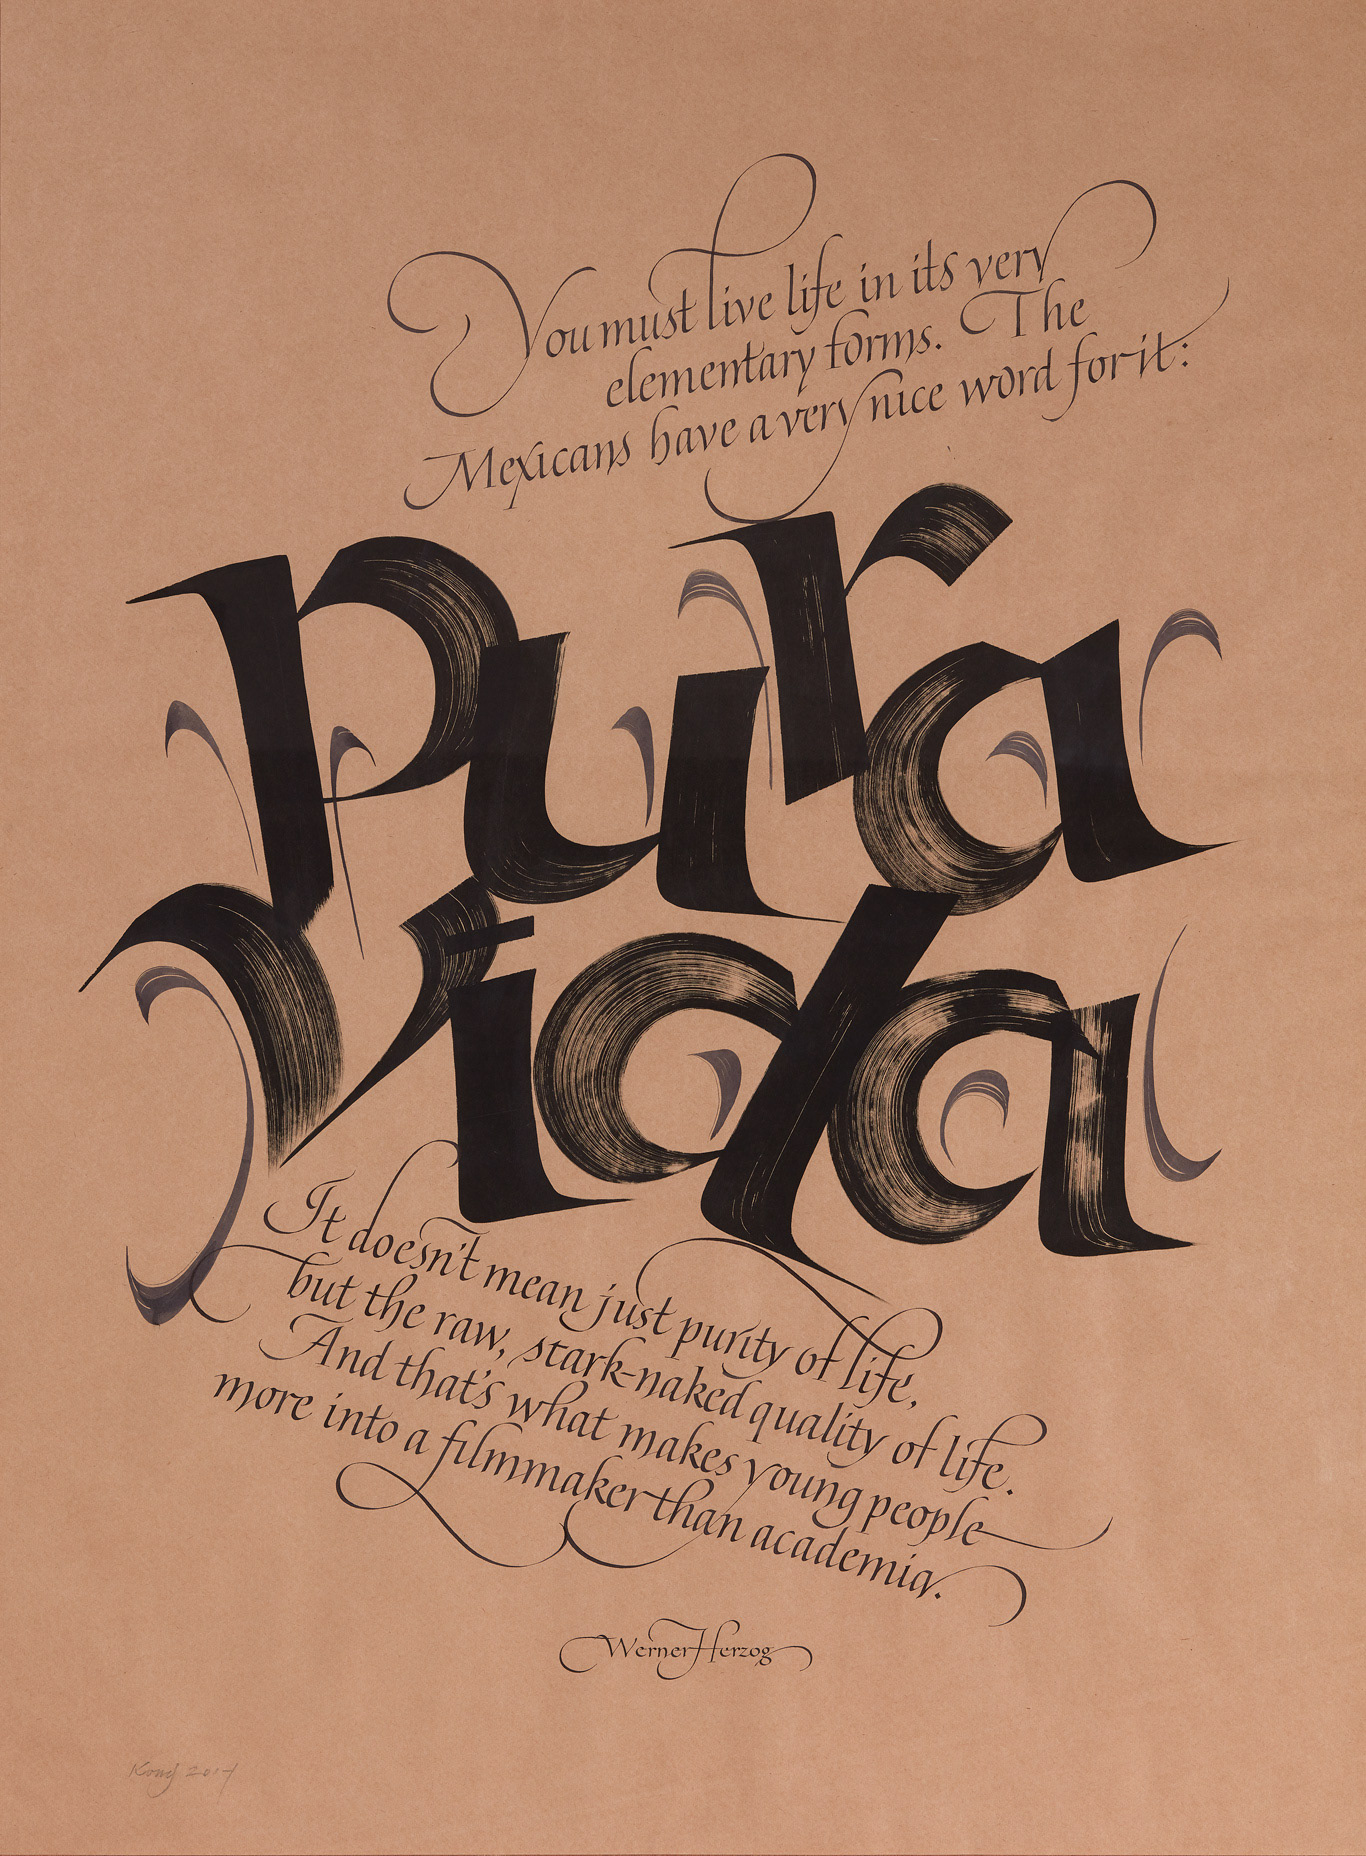 You must live life in its very
elementary forms. The
Mexicans have a very nice word for it:
pura
vida
It doesn't mean just purity of life,
but the raw, stark-naked quality of life.
And that's what makes young people
more into a filmmaker than academia.
Werner Herzog
2017